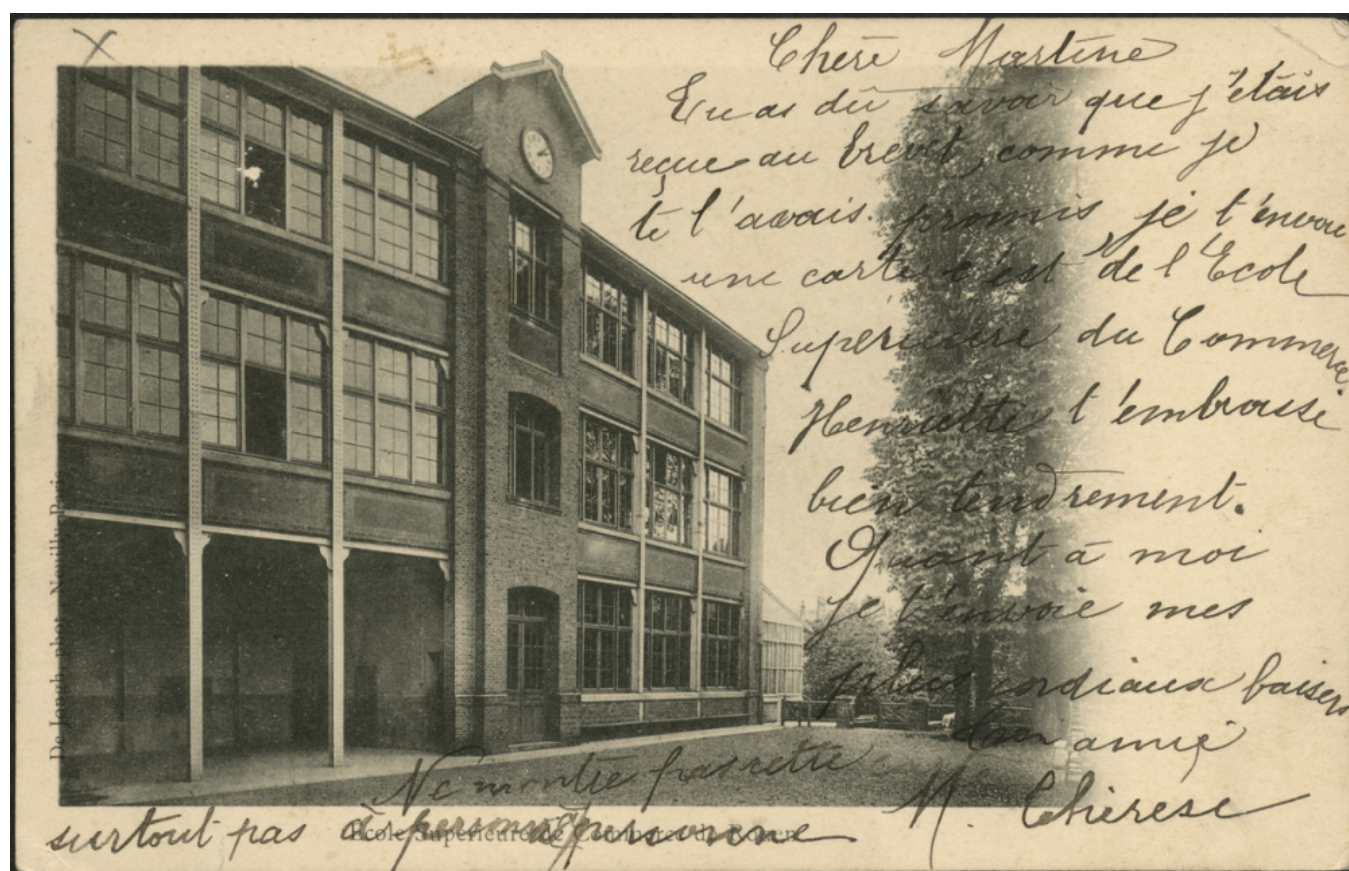 Chère Martine
Tu as dû savoir que j'étais
reçue au brevet, comme je
te l'avais promis je t'envoie
une carte c'est de l'Ecole
Supérieure du Commerce.
Henriette t'embrasse
bien tendrement.
Quant à moi
je t'envoie mes
plus cordiaux baisers
Ton amie
M. Thérèse
Ne montre pas cette
surtout pas à personne
Ecole Supérieure de Commerce de Rouen
De Jongh, phot. Neuilly-Paris